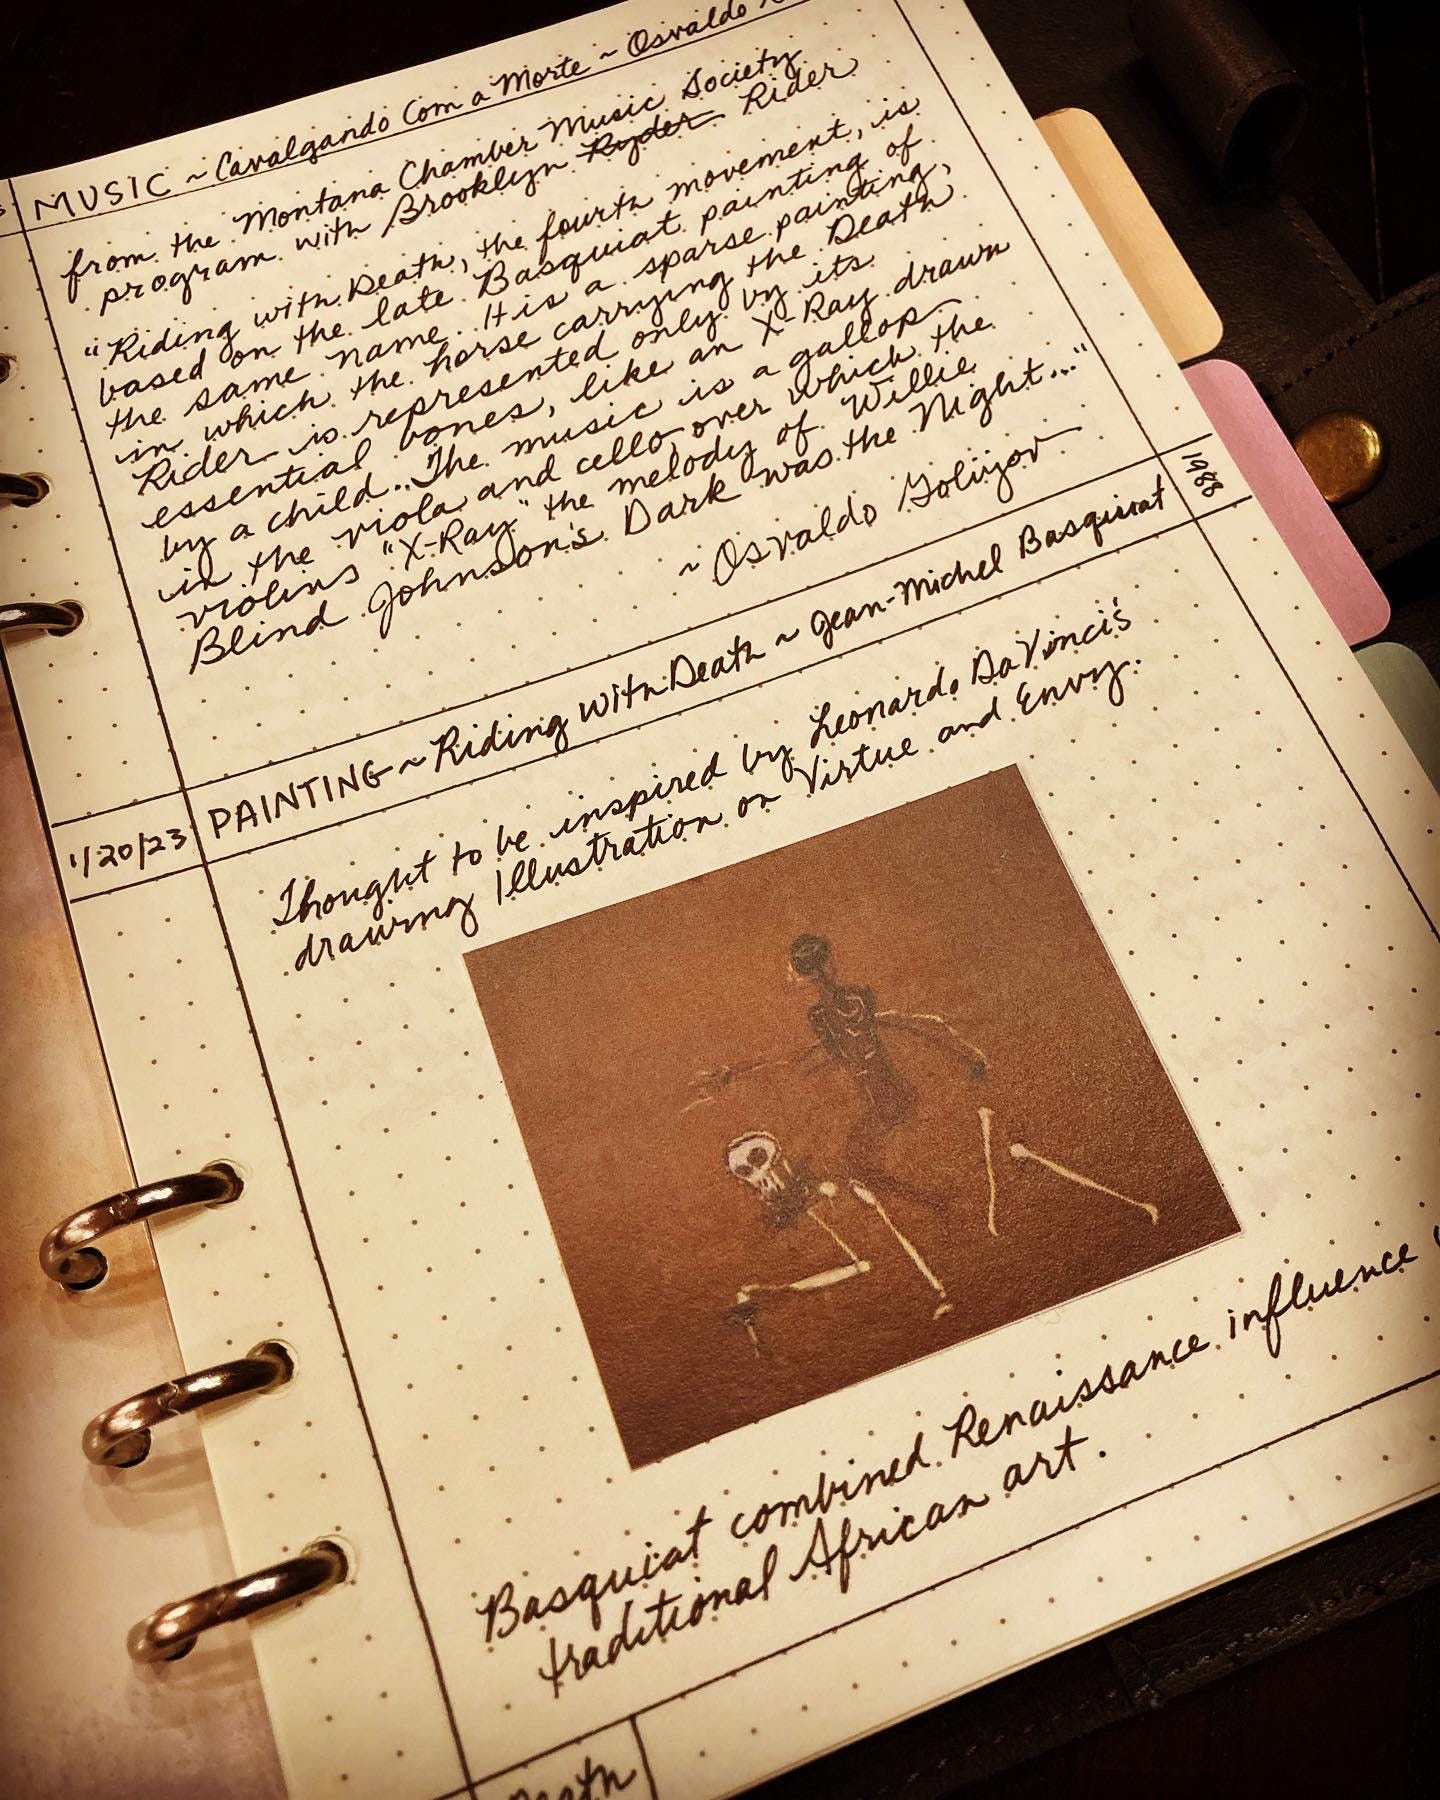 MUSIC ~ Cavalgando Com a Morte ~ Osvaldo
from the Montana Chamber Music Society
program with Brooklyn Ryder Rider
"Riding with Death, the fourth movement, is
based on the late Basquiat painting of
the same name. It is a sparse painting,
in which the horse carrying the Death
Rider is represented only by its
essential bones, like an X-Ray drawn
by a child... The music is a gallop
in the viola and cello, over which the
violins "X-Ray" the melody of Willie
Blind Johnson's Dark was the Night..."
~ Osvaldo Golijov
1/20/23 PAINTING ~ Riding With Death ~ Jean-Michel Basquiat 1988
Thought to be inspired by Leonardo DaVinci's
drawing Illustration on Virtue and Envy.
Basquiat combined Renaissance influence
traditional African art.
Death